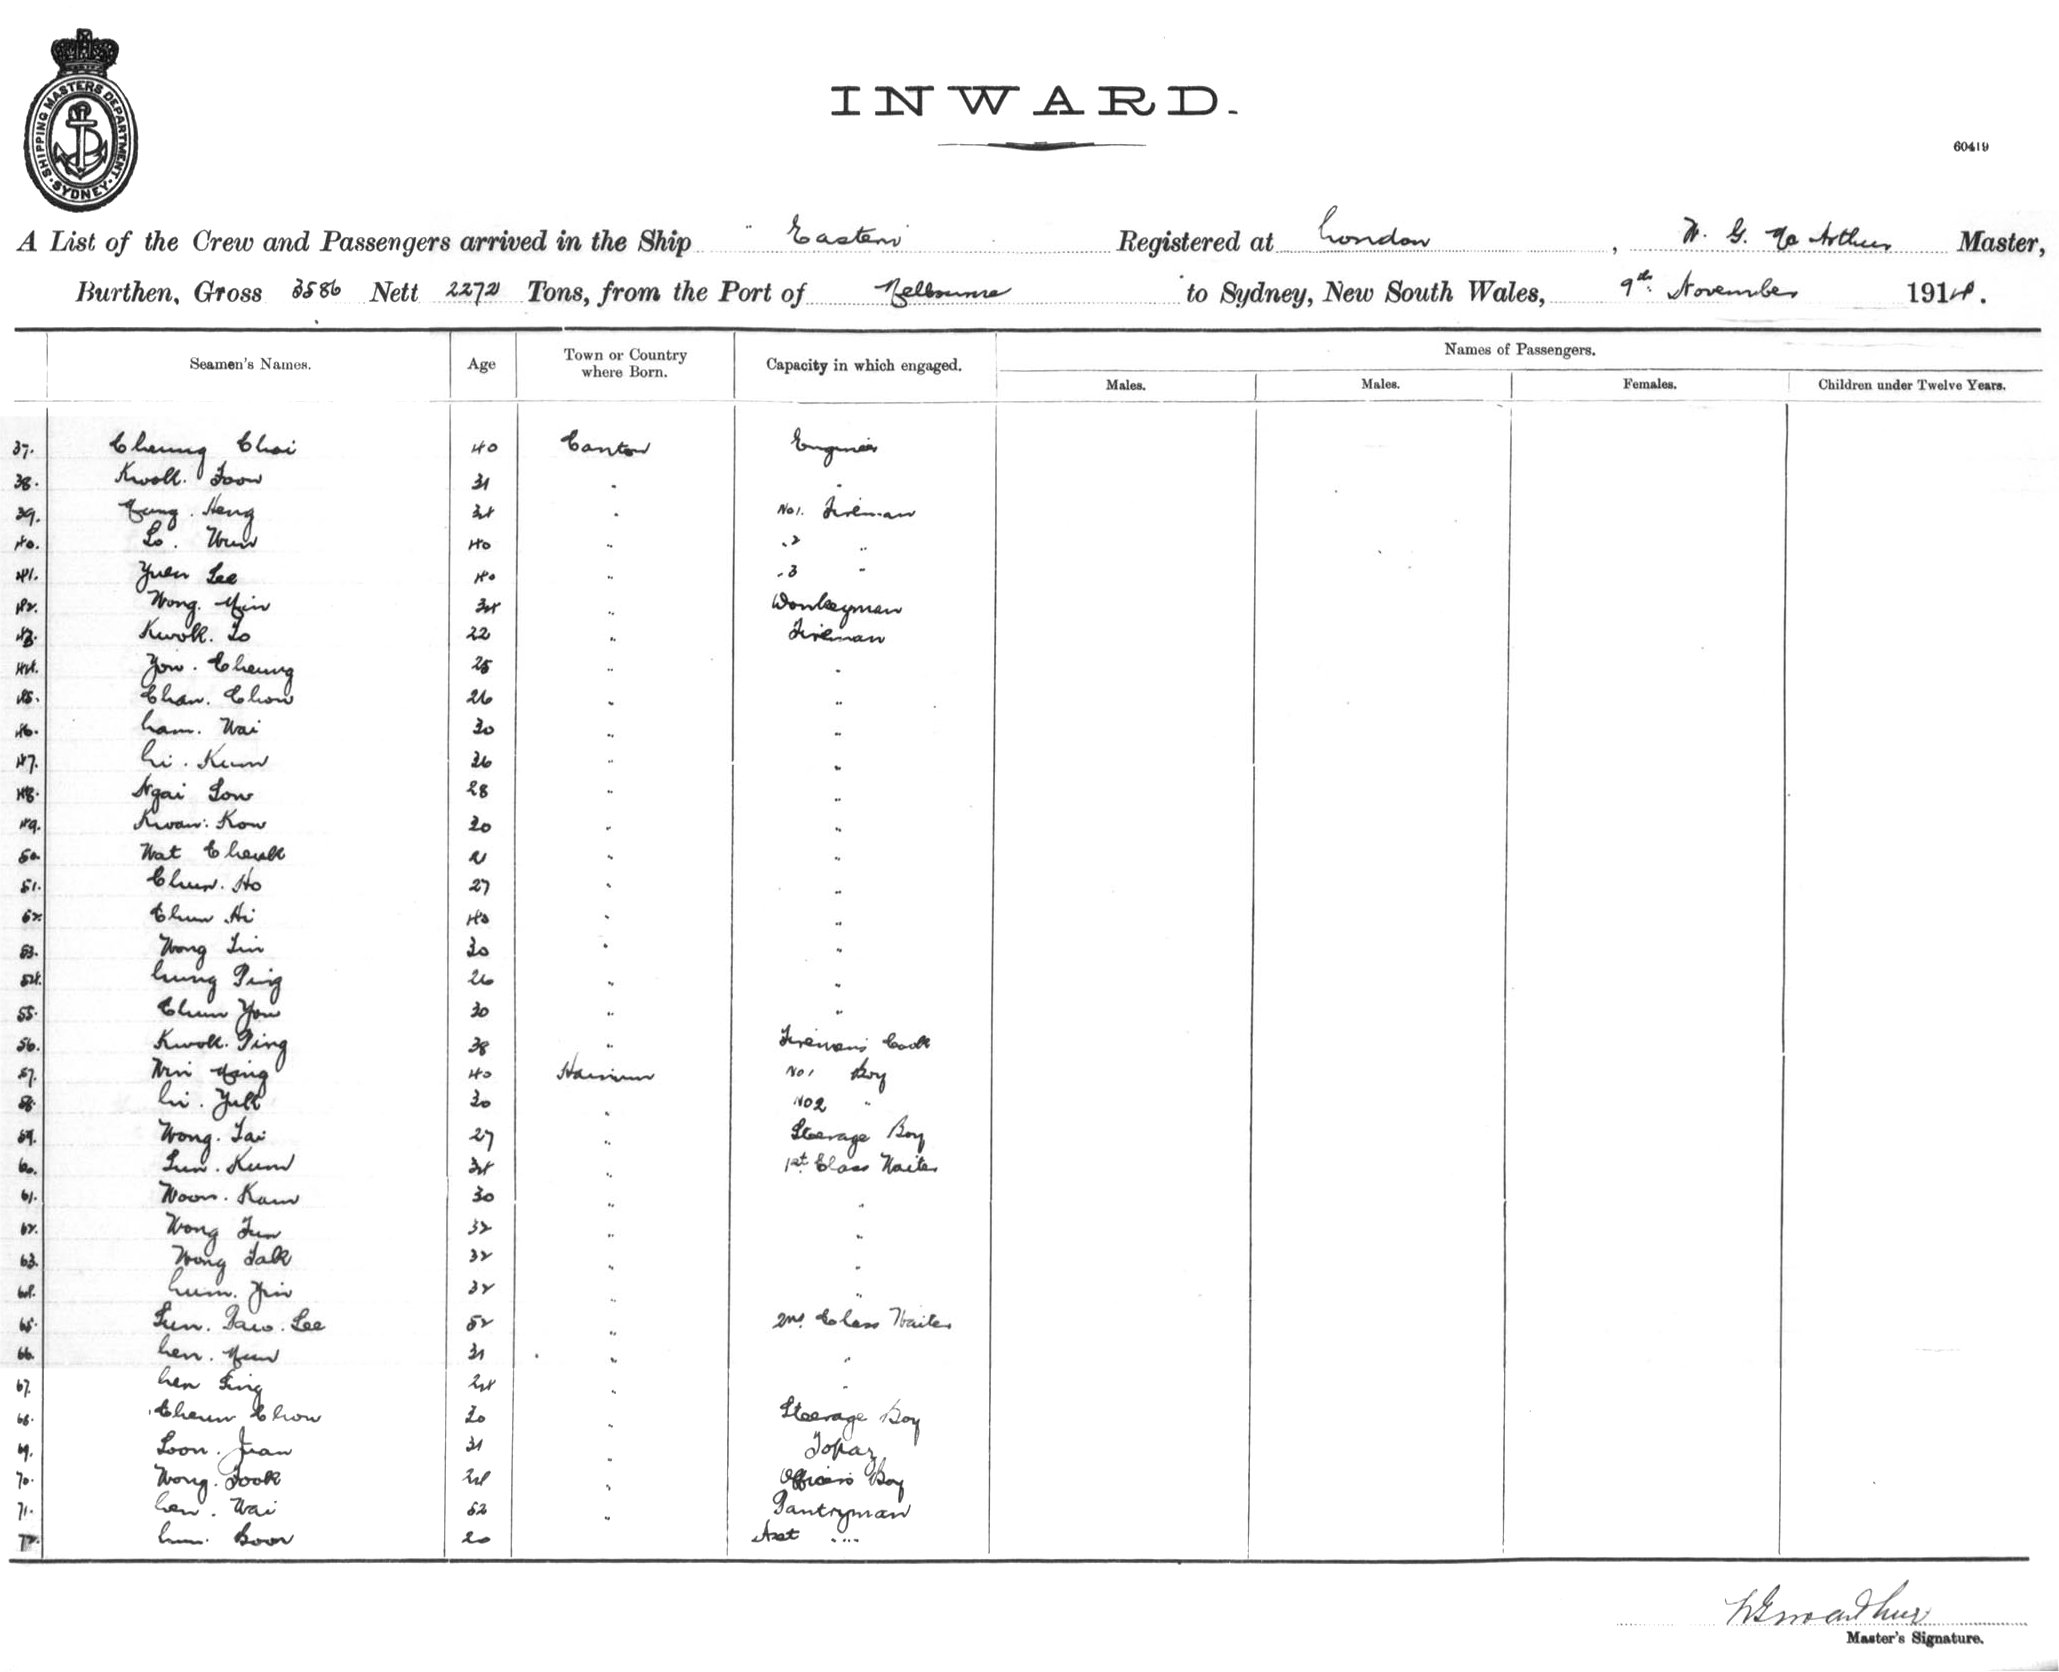 SHIPPING MASTERS DEPARTMENT
· SYDNEY ·
INWARD.
60419
A List of the Crew and Passengers arrived in the Ship "Eastern" Registered at London, W. G. McArthur Master,
Burthen, Gross 3586 Nett 2272 Tons, from the Port of Melbourne to Sydney, New South Wales, 9th November 1914.
Seamen's Names. Age Town or Country where Born. Capacity in which engaged. Names of Passengers.
Males. Males. Females. Children under Twelve Years.
37. Cheung Choi 40 Canton Engineer
38. Kwok. Foon 31 " "
39. Heng 34 " No 1. Fireman
40. So. Wun 40 " " 2 "
41. Yuen See 40 " " 3 "
42. Wong. Min 34 " Donkeyman
43. Kwok. To 22 " Fireman
44. Yow. Cheung 25 " "
45. Chan. Chow 26 " "
46. Lam. Wai 30 " "
47. Li. Kum 36 " "
48. Ngai Sow 28 " "
49. Kwan. Kow 30 " "
50. Wat Cheuk 21 " "
51. Chun. Ho 27 " "
52. Chun Hi 40 " "
53. Wong 30 " "
54. Lung Ping 26 " "
55. Chun You 30 " "
56. Kwok. Ping 38 " Fireman's Cook
57. Win Ming 40 Hainan No 1 Boy
58. Li. Yuk 30 " No 2 "
59. Wong. Tai 27 " Steerage Boy
60. Sun. Kum 34 " 1st Class Waiter
61. Woon. Kam 30 " "
62. Wong Fun 32 " "
63. Wong Tak 32 " "
64. Lum. Yin 32 " "
65. Sun. Paw. See 52 " 2nd Class Waiter
66. Len. Mun 31 " "
67. Len Sing 24 " "
68. Cheun Chow 30 " Steerage Boy
69. Soon. Juan 31 " Topaz
70. Wong. Fook 24 " Officers Boy
71. Len. Wai 52 " Pantryman
72. Lum. Boon 20 Asst "
WGMcArthur
Master's Signature.